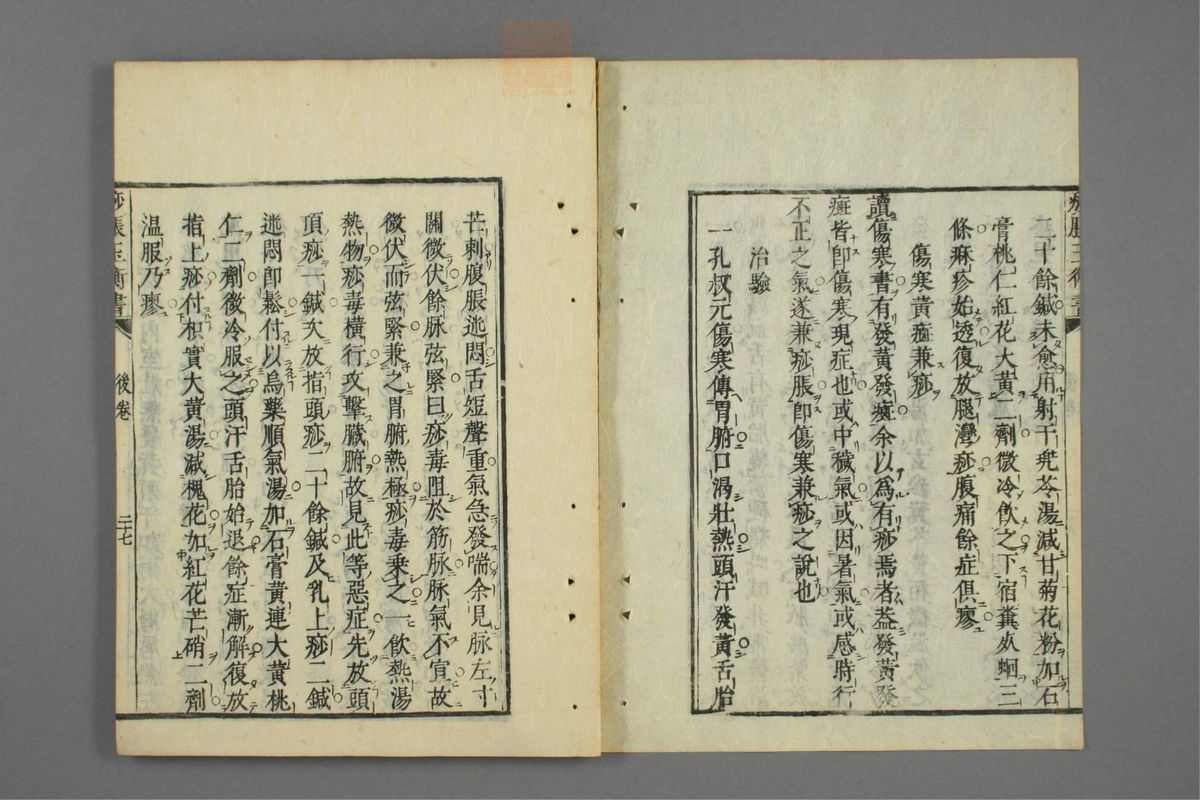 痧脹玉衡書
二十餘鍼未愈用射干兠苓湯減甘菊花粉加石
膏桃仁紅花大黃二劑微冷飲之下宿糞及蛔三
條痳疹始透復放腿灣痧腹痛餘症俱瘳
傷寒黃癍兼痧
讀傷寒書有發黃發癍余以為有痧焉者葢發黃發
癍皆即傷寒現症也或中穢氣或因暑氣或感時行
不正之氣遂兼痧脹即傷寒兼痧之說也
治驗
一孔叔元傷寒傳胃腑口渴壯熱頭汗發黃舌胎
芒刺腹脹迷悶舌短聲重氣急發喘余見脉左寸
關微伏餘脉弦緊曰痧毒阻於筋脉脉氣不宣故
微伏而弦緊兼之胃腑熱極痧毒乗之一飲熱湯
熱物痧毒橫行攻擊臓腑故見此等惡症先放頭
頂痧一鍼次放指頭痧二十餘鍼及乳上痧二鍼
迷悶即鬆付以烏藥順氣湯加石膏黃連大黃桃
仁二劑微冷服之頭汗舌胎始退餘症漸解復放
指上痧付枳實大黃湯減槐花加紅花芒硝二劑
温服乃瘳
痧脹玉衡書
後卷
二十七